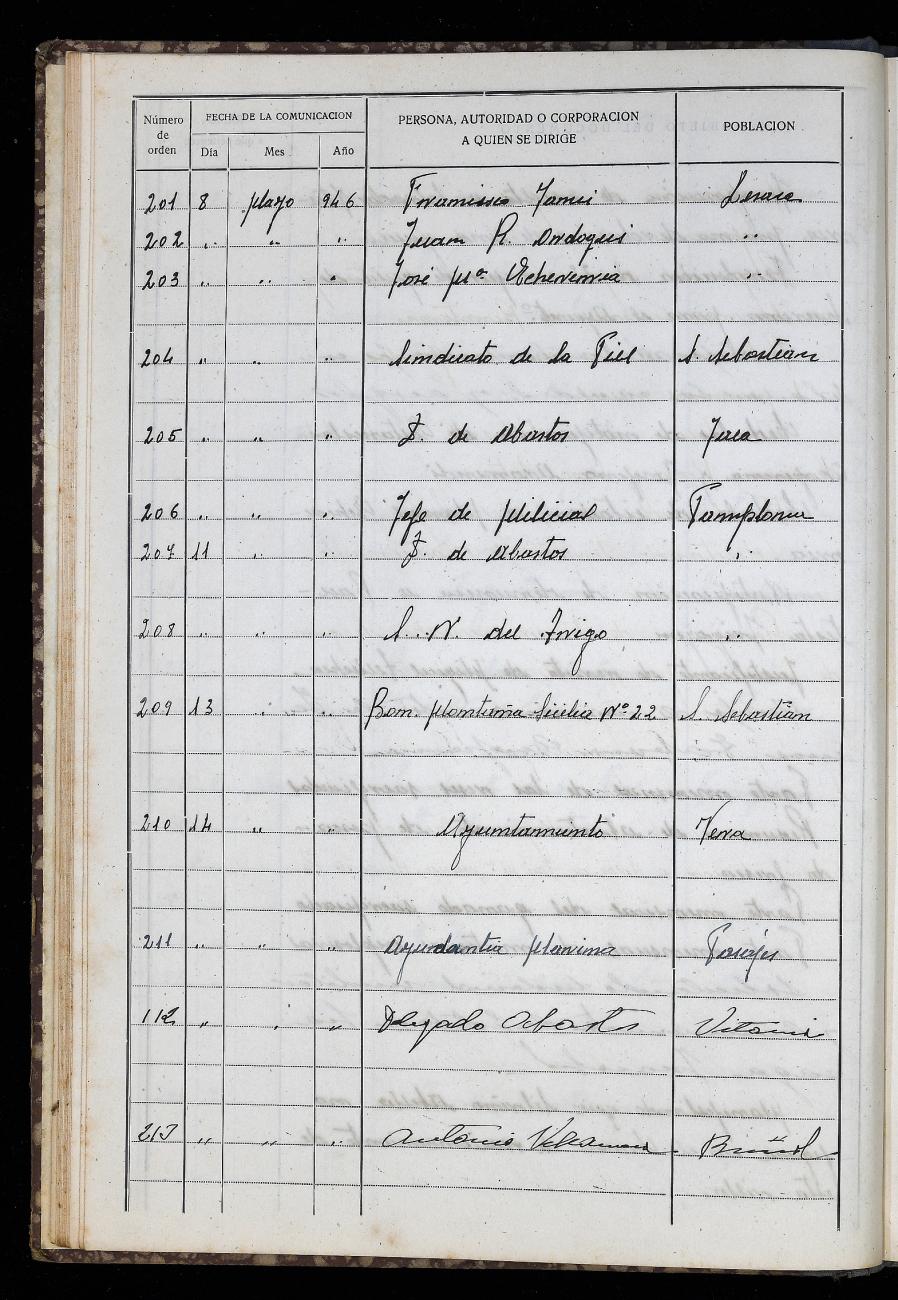 Número de orden FECHA DE LA COMUNICACION PERSONA, AUTORIDAD O CORPORACION A QUIEN SE DIRIGE POBLACION
Día Mes Año
201 8 Mayo 946 Francisco Lesaca
202 " " " Juan R. Ondoqui "
203 " " " José Mª Echeverria "
204 " " " Sindicato de la Piel S. Sebastian
205 " " " de Abastos Jaca
206 " " " Jefe de Milicias Pamplona
207 11 " " de Abastos "
208 " " " S. N. del Trigo "
209 13 " " Bon. Montaña Sicilia Nº 22 S. Sebastian
210 14 " " Ayuntamiento Vera
211 " " " Ayudantia Marina Pasajes
112 " " " Delegado Abastos Vitoria
213 " " " Antonio Buñol